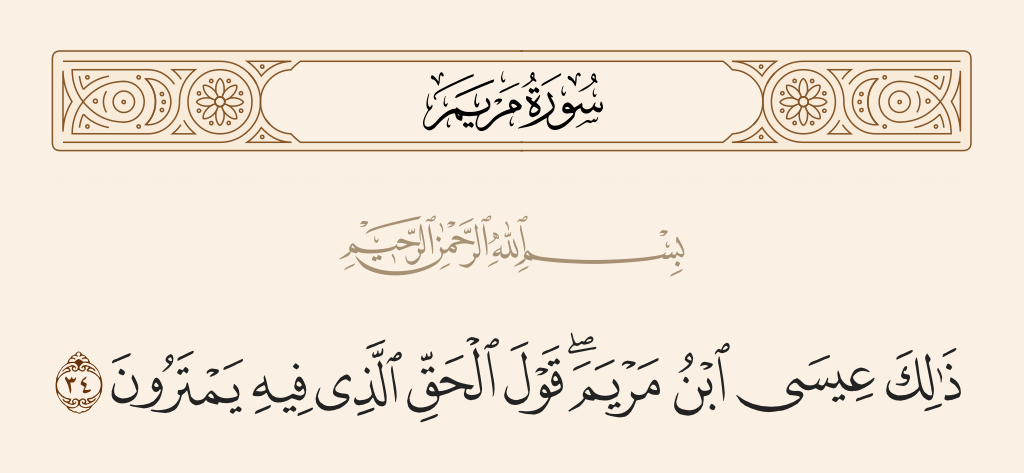 سُورَةُ مَرْيَمَ
بِسْمِ ٱللَّهِ ٱلرَّحْمَٰنِ ٱلرَّحِيمِ
ذَٰلِكَ عِيسَى ٱبْنُ مَرْيَمَ ۖ قَوْلَ ٱلْحَقِّ ٱلَّذِى فِيهِ يَمْتَرُونَ ٣٤